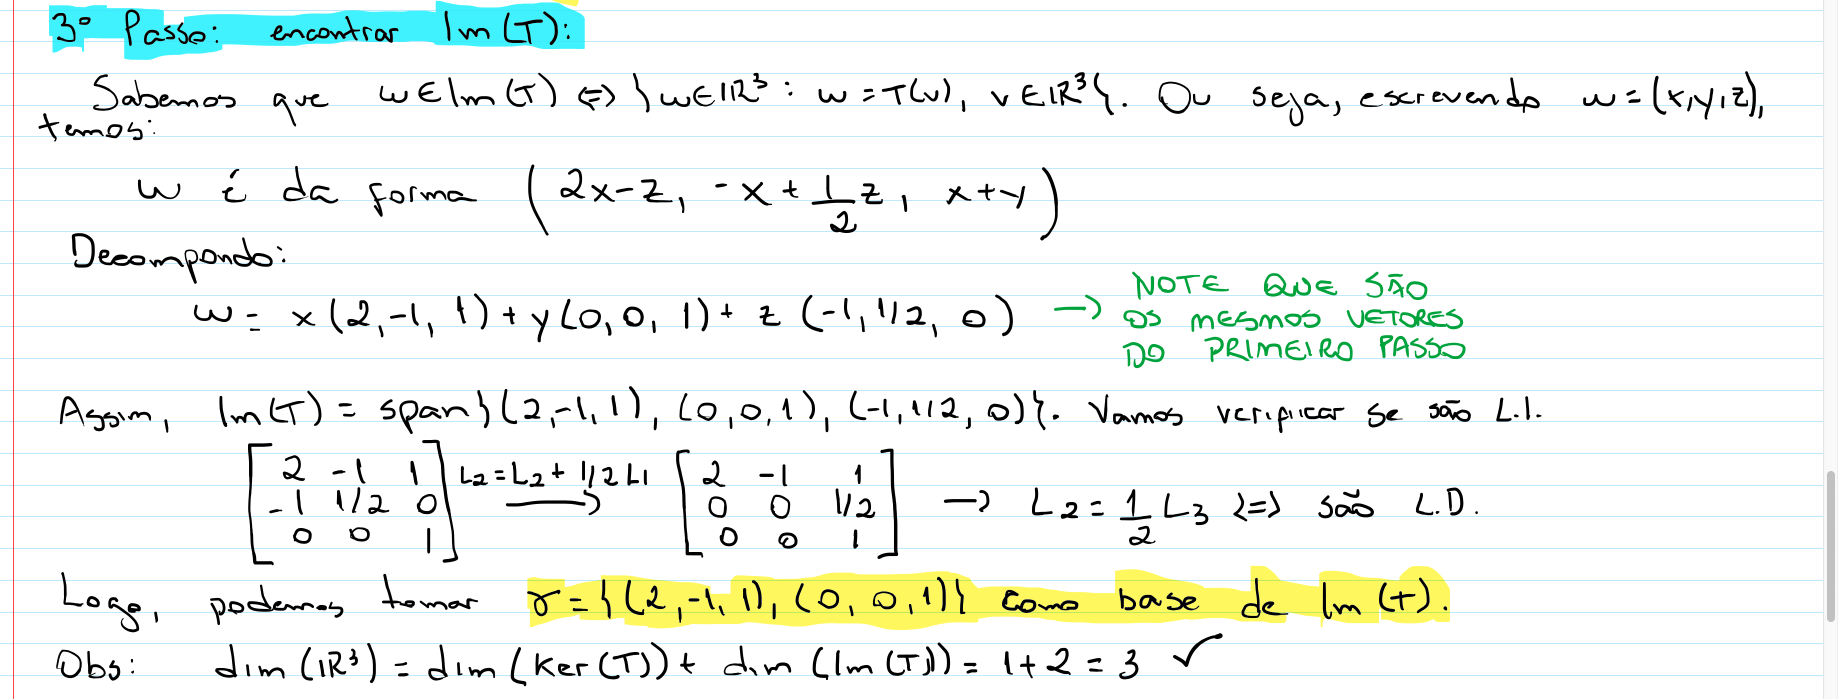 3º Passo: encontrar Im(T):
Sabemos que w∈Im(T) ⇔ {w∈ℝ³ : w=T(v), v∈ℝ³}. Ou seja, escrevendo w=(x,y,z),
temos:
w é da forma (2x-z, -x+1/2z, x+y)
Decompondo:
w = x(2,-1,1)+y(0,0,1)+z(-1,1/2,0) → NOTE QUE SÃO
OS MESMOS VETORES
DO PRIMEIRO PASSO
Assim, Im(T) = span{(2,-1,1), (0,0,1), (-1,1/2,0)}. Vamos verificar se são L.I.
[2 -1 1; -1 1/2 0; 0 0 1] L2=L2+1/2L1 → [2 -1 1; 0 0 1/2; 0 0 1] → L2=1/2L3 ⇔ são L.D.
Logo, podemos tomar γ={(2,-1,1),(0,0,1)} como base de Im(T).
Obs: dim(ℝ³) = dim(Ker(T))+dim(Im(T)) = 1+2 = 3 ✓